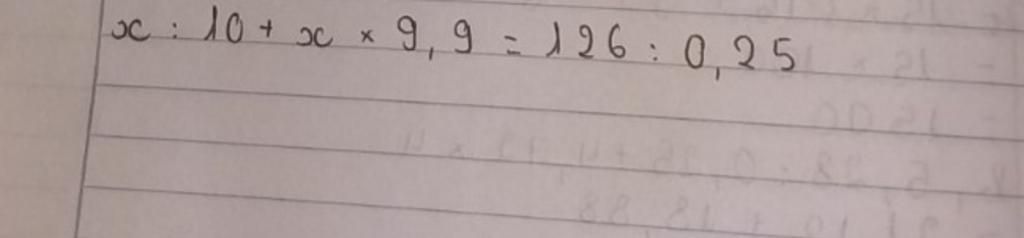 x : 10 + x × 9,9 = 126 : 0,25